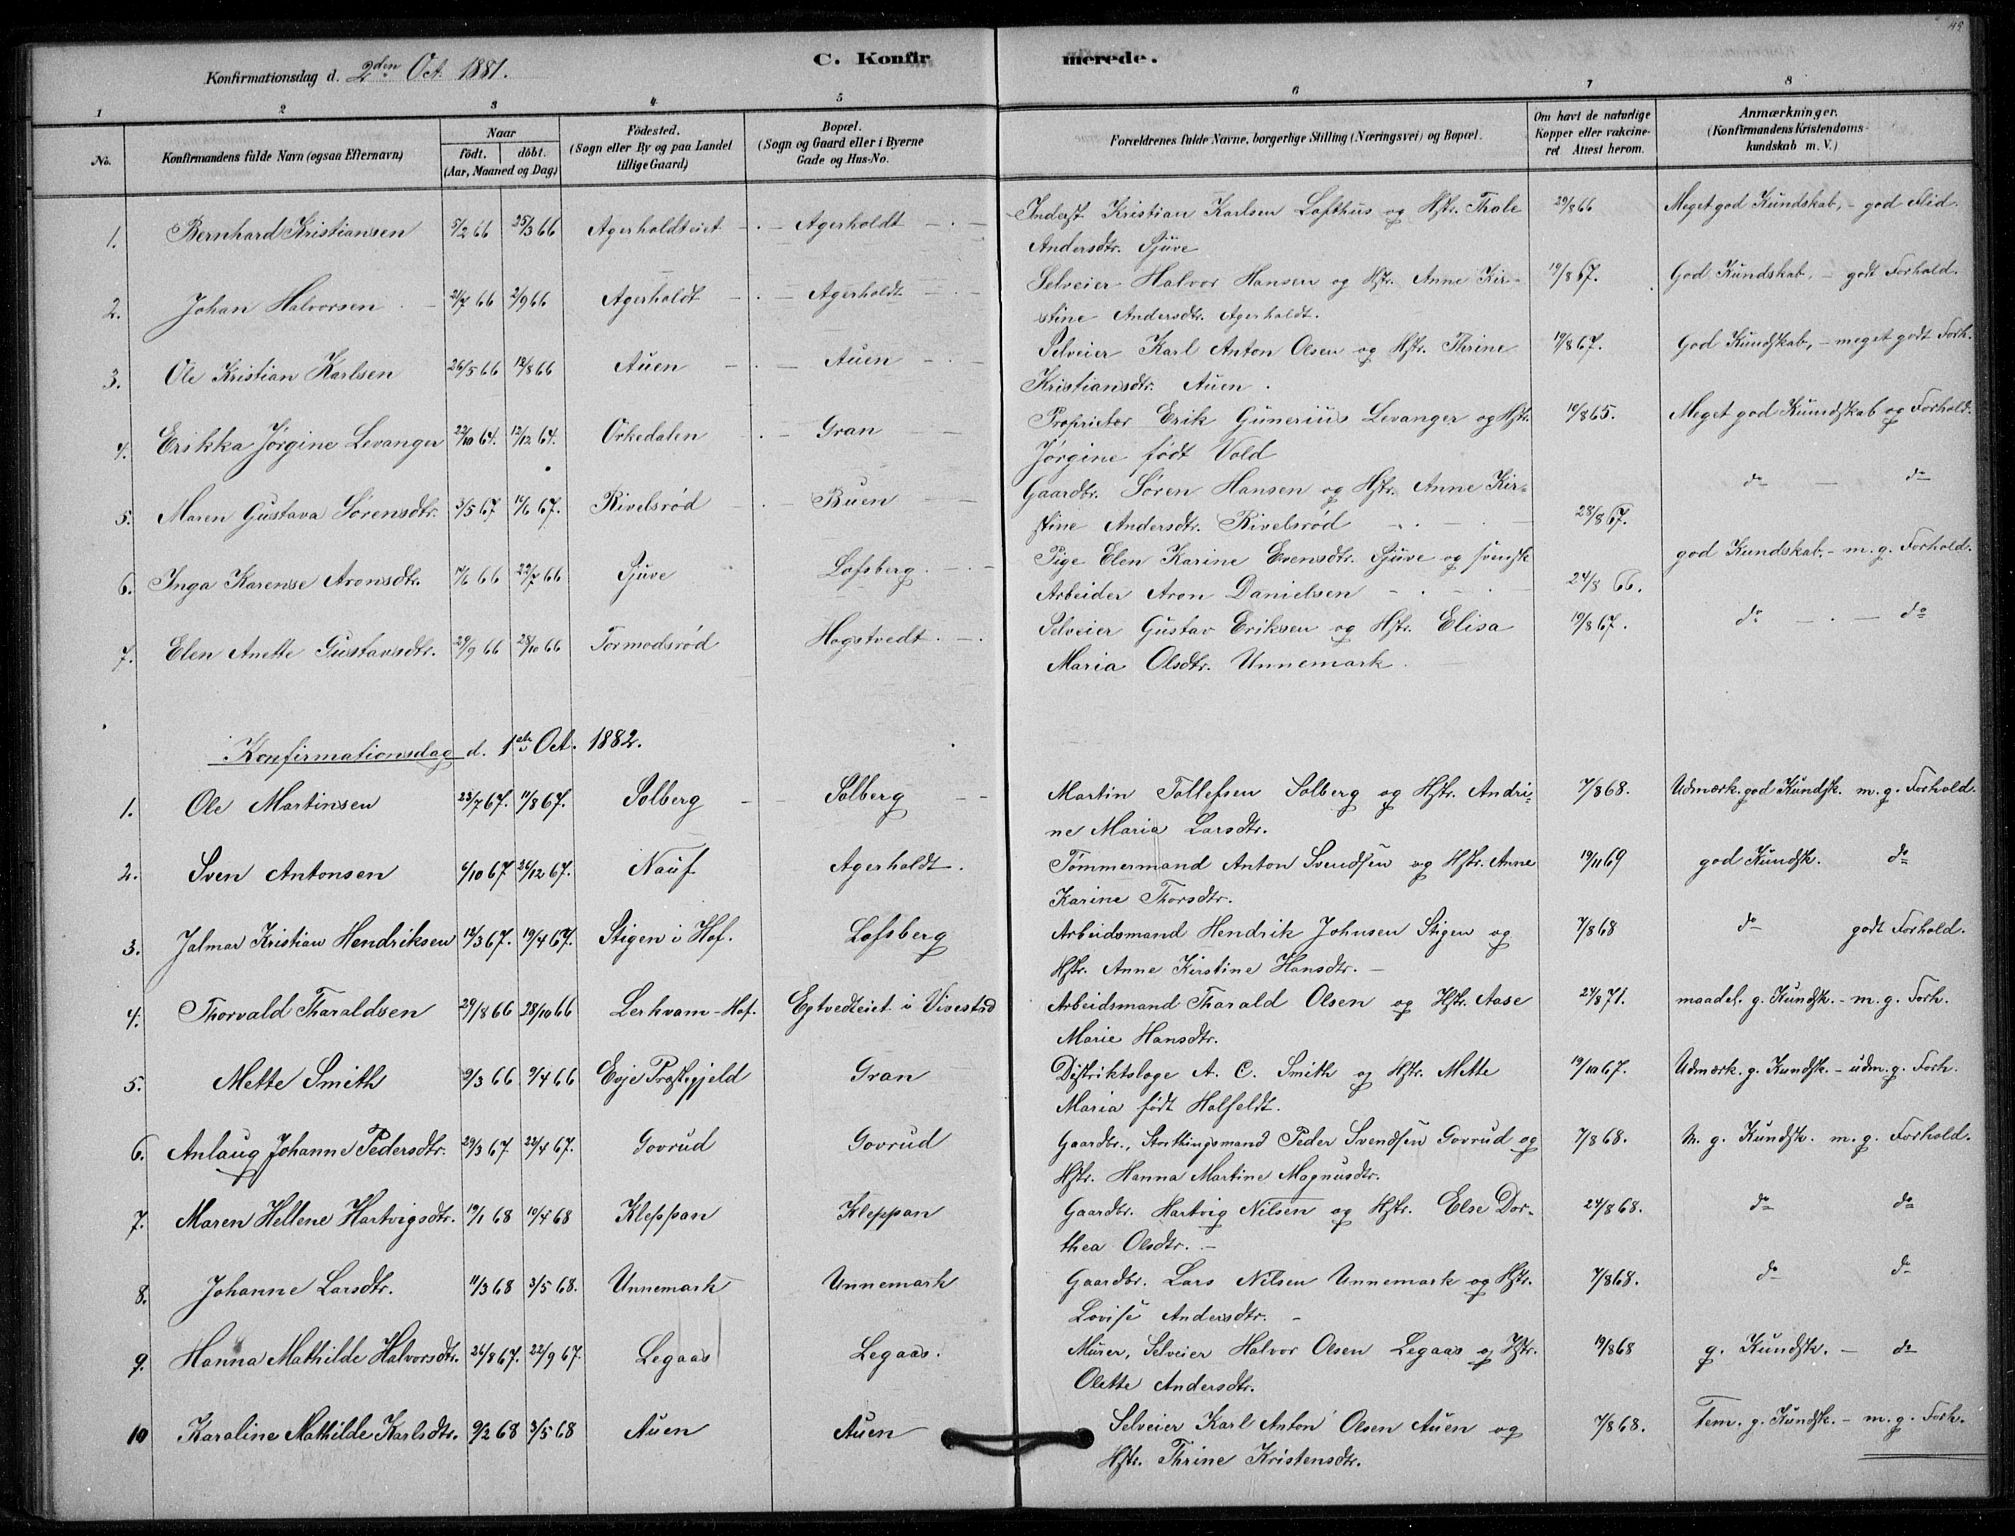 45
Konfirmationsdag d. 2den Oct. 1881.
C. Konfirmerede.
1 2 3 4 5 6 7 8
No.
Konfirmandens fulde Navn (ogsaa Efternavn)
Naar
født. døbt.
(Aar, Maaned og Dag)
Fødested.
(Sogn eller By og paa Landet
tillige Gaard)
Bopæl.
(Sogn og Gaard eller i Byerne
Gade og Hus-No.
Forældrenes fulde Navne, borgerlige Stilling (Næringsvei) og Bopæl.
Om havt de naturlige
Kopper eller vakcine-
ret Attest herom.
Anmærkninger.
(Konfirmandens Kristendoms-
kundskab m. V.)
1. Bernhard Kristiansen 5/2 66 25/3 66 Agerholdteiet - . - Agerholdt - . - Inderst Kristian Karlsen Lofthus og Hstr. Thale 29/8 66 Meget god Kundskab, - god Flid.
Andersdtr. Sjuve
2. Johan Halvorsen 21/7 66 2/9 66 Agerholdt - . - Agerholdt - . - Selveier Halvor Hansen og Hstr. Anne Kir- 19/8 67. God Kundskab, - godt Forhold.
stine Andersdtr. Agerholdt.
3. Ole Kristian Karlsen 26/5 66 12/8 66 Auen - . - Auen - . - Selveier Karl Anton Olsen og Hstr. Thrine 19/8 67. God Kundskab, - meget godt Forh.
Kristiansdtr. Auen.
4. Erikka Jørgine Levanger 22/10 64. 12/12 64. Orkedalen . - Gran - - Proprietær Erik Gunerius Levanger og Hstr. 19/8 65. Meget god Kundskab og Forhold.
Jørgine født Vold
5. Maren Gustava Sørensdtr. 3/5 67 16/6 67. Rivelsrød . Buen - - Gaardbr. Søren Hansen og Hstr. Anne Kir- do - do
stine Andersdtr. Rivelsrød - . - . - 28/8 67.
6. Inga Karense Aronsdtr. 17/6 66 22/7 66 Sjuve Lofsberg. - . - Pige Elen Karine Evensdtr. Sjuve og svensk god Kundskab. - m. g. Forhold.
Arbeider Aron Danielsen - . - . - 24/8 66.
7. Elen Anette Gustavsdtr. 29/9 66 28/10 66 Tormodsrød Hogstvedt. - . Selveier Gustav Eriksen og Hstr. Elisa 19/8 67. do - . - do
Maria Olsdtr. Unnemark.
Konfirmationsdag d. 1ste Oct. 1882.
1. Ole Martinsen 23/7 67. 11/8 67. Solberg - - Solberg - - Martin Tollefsen Solberg og Hstr. Andri- 7/8 68. Udmærk. god Kundsk. m. g. Forhold.
ne Maria Larsdtr.
2. Sven Antonsen 6/10 67 26/12 67. Nauf Agerholdt. Tømmermand Anton Svendsen og Hstr. Anne 19/11 69 god Kundsk. do
Karine Thorsdtr.
3. Jalmar Kristian Hendriksen 12/3 67. 19/4 67. Stigen i Hof. Lofsberg Arbeidsmand Hendrik Johnsen Stigen og 7/8 68 do godt Forhold.
Hstr. Anne Kirstine Hansdtr. -
4. Thorvald Tharaldsen 29/8 66 28/10 66 Lerhvam - Hof. Egtvedteiet i Vivestad Arbeidsmand Tharald Olsen og Hstr. Aase 24/8 71. maadel. g. Kundsk. - m. g. Forh.
Marie Hansdtr.
5. Mette Smith 9/3 66 9/4 66 Evje Præstegjeld Gran Distriktslæge A. C. Smith og Hstr. Mette 19/10 67. Udmærk. g. Kundsk. - udm. g. Forh.
Maria født Halfeldt.
6. Anlaug Johanne Pedersdtr. 29/3 67. 22/4 67. Govrud Govrud Gaardbr., Storthingsmand Peder Svendsen Govrud og 7/8 68. M. g. Kundsk. m. g. Forhold.
Hstr. Hanna Martine Magnusdtr.
7. Maren Hellene Hartvigsdtr. 19/1 68 10/4 68 Kleppan Kleppan Gaardbr. Hartvig Nilsen og Hstr. Else Dor- 24/8 68. do do
thea Olsdtr. -
8. Johanne Larsdtr. 11/3 68 3/5 68. Unnemark Unnemark Gaardbr. Lars Nilsen Unnemark og Hstr. 7/8 68. do do
Lovise Andersdtr. -
9. Hanna Mathilde Halvorsdtr. 26/8 67. 22/9 67. Legaas Legaas. Murer, Selveier Halvor Olsen Legaas og Hstr. 19/8 68 g. Kundsk. - do
Olette Andersdtr.
10 Karaline Mathilde Karlsdtr. 9/2 68 3/5 68 Auen Auen Selveier Karl Anton Olsen Auen og 7/8 68. Tem. g. Kundsk. - m. g. Forh.
Hstr. Thrine Kristensdtr.